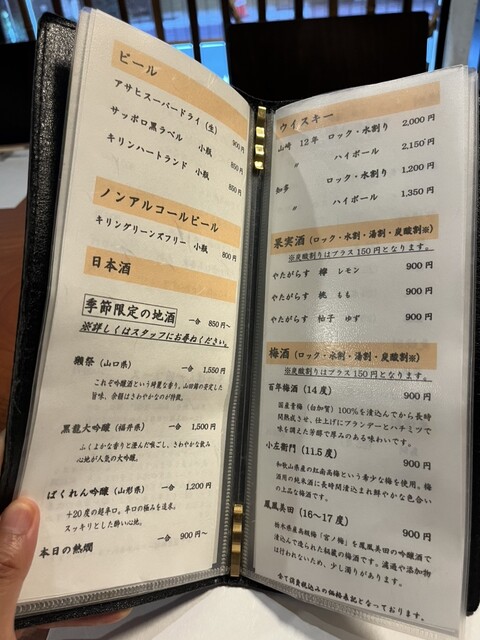 ビール
アサヒスーパードライ（生） 900円
サッポロ黒ラベル 小瓶 850円
キリンハートランド 小瓶 850円
ノンアルコールビール
キリングリーンズフリー 小瓶 800円
日本酒
季節限定の地酒 一合 850円～
※詳しくはスタッフにお尋ねください。
獺祭（山口県） 一合 1,550円
これぞ吟醸酒という綺麗な香り。山田錦の安定した
旨味、余韻はさわやかなのが特徴。
黒龍大吟醸（福井県） 一合 1,500円
ふくよかな香りと澄んだ喉ごし、さわやかな飲み
心地が人気の大吟醸。
ばくれん吟醸（山形県） 一合 1,200円
＋20度の超辛口。辛口の極みを追求。
スッキリとした酔い心地。
本日の熱燗 一合 900円～
ウイスキー
山崎 12年 ロック・水割り 2,000円
〃 ハイボール 2,150円
知多 ロック・水割り 1,200円
〃 ハイボール 1,350円
果実酒（ロック・水割・湯割・炭酸割※）
※炭酸割りはプラス150円となります。
やたがらす 檸 レモン 900円
やたがらす 桃 もも 900円
やたがらす 柚子 ゆず 900円
梅酒（ロック・水割・湯割・炭酸割※）
※炭酸割りはプラス150円となります。
百年梅酒（14度） 900円
国産青梅（白加賀）100%を漬込んでから長時
間熟成させ、仕上げにブランデーとハチミツで
味を調えた芳醇で厚みのある味わいです。
小左衛門（11.5度） 900円
和歌山県産の紅南高梅という希少な梅を使用。梅
酒用の純米酒に長時間漬込まれ鮮やかな色合い
の上品な梅酒です。
鳳凰美田（16～17度） 900円
栃木県産高級梅「宮ノ梅」を鳳凰美田の吟醸酒で
漬込んで造られた秘蔵の梅酒です。濾過や添加物
は行われないため、少し濁りがあります。
全て消費税込みの価格表記となっております。